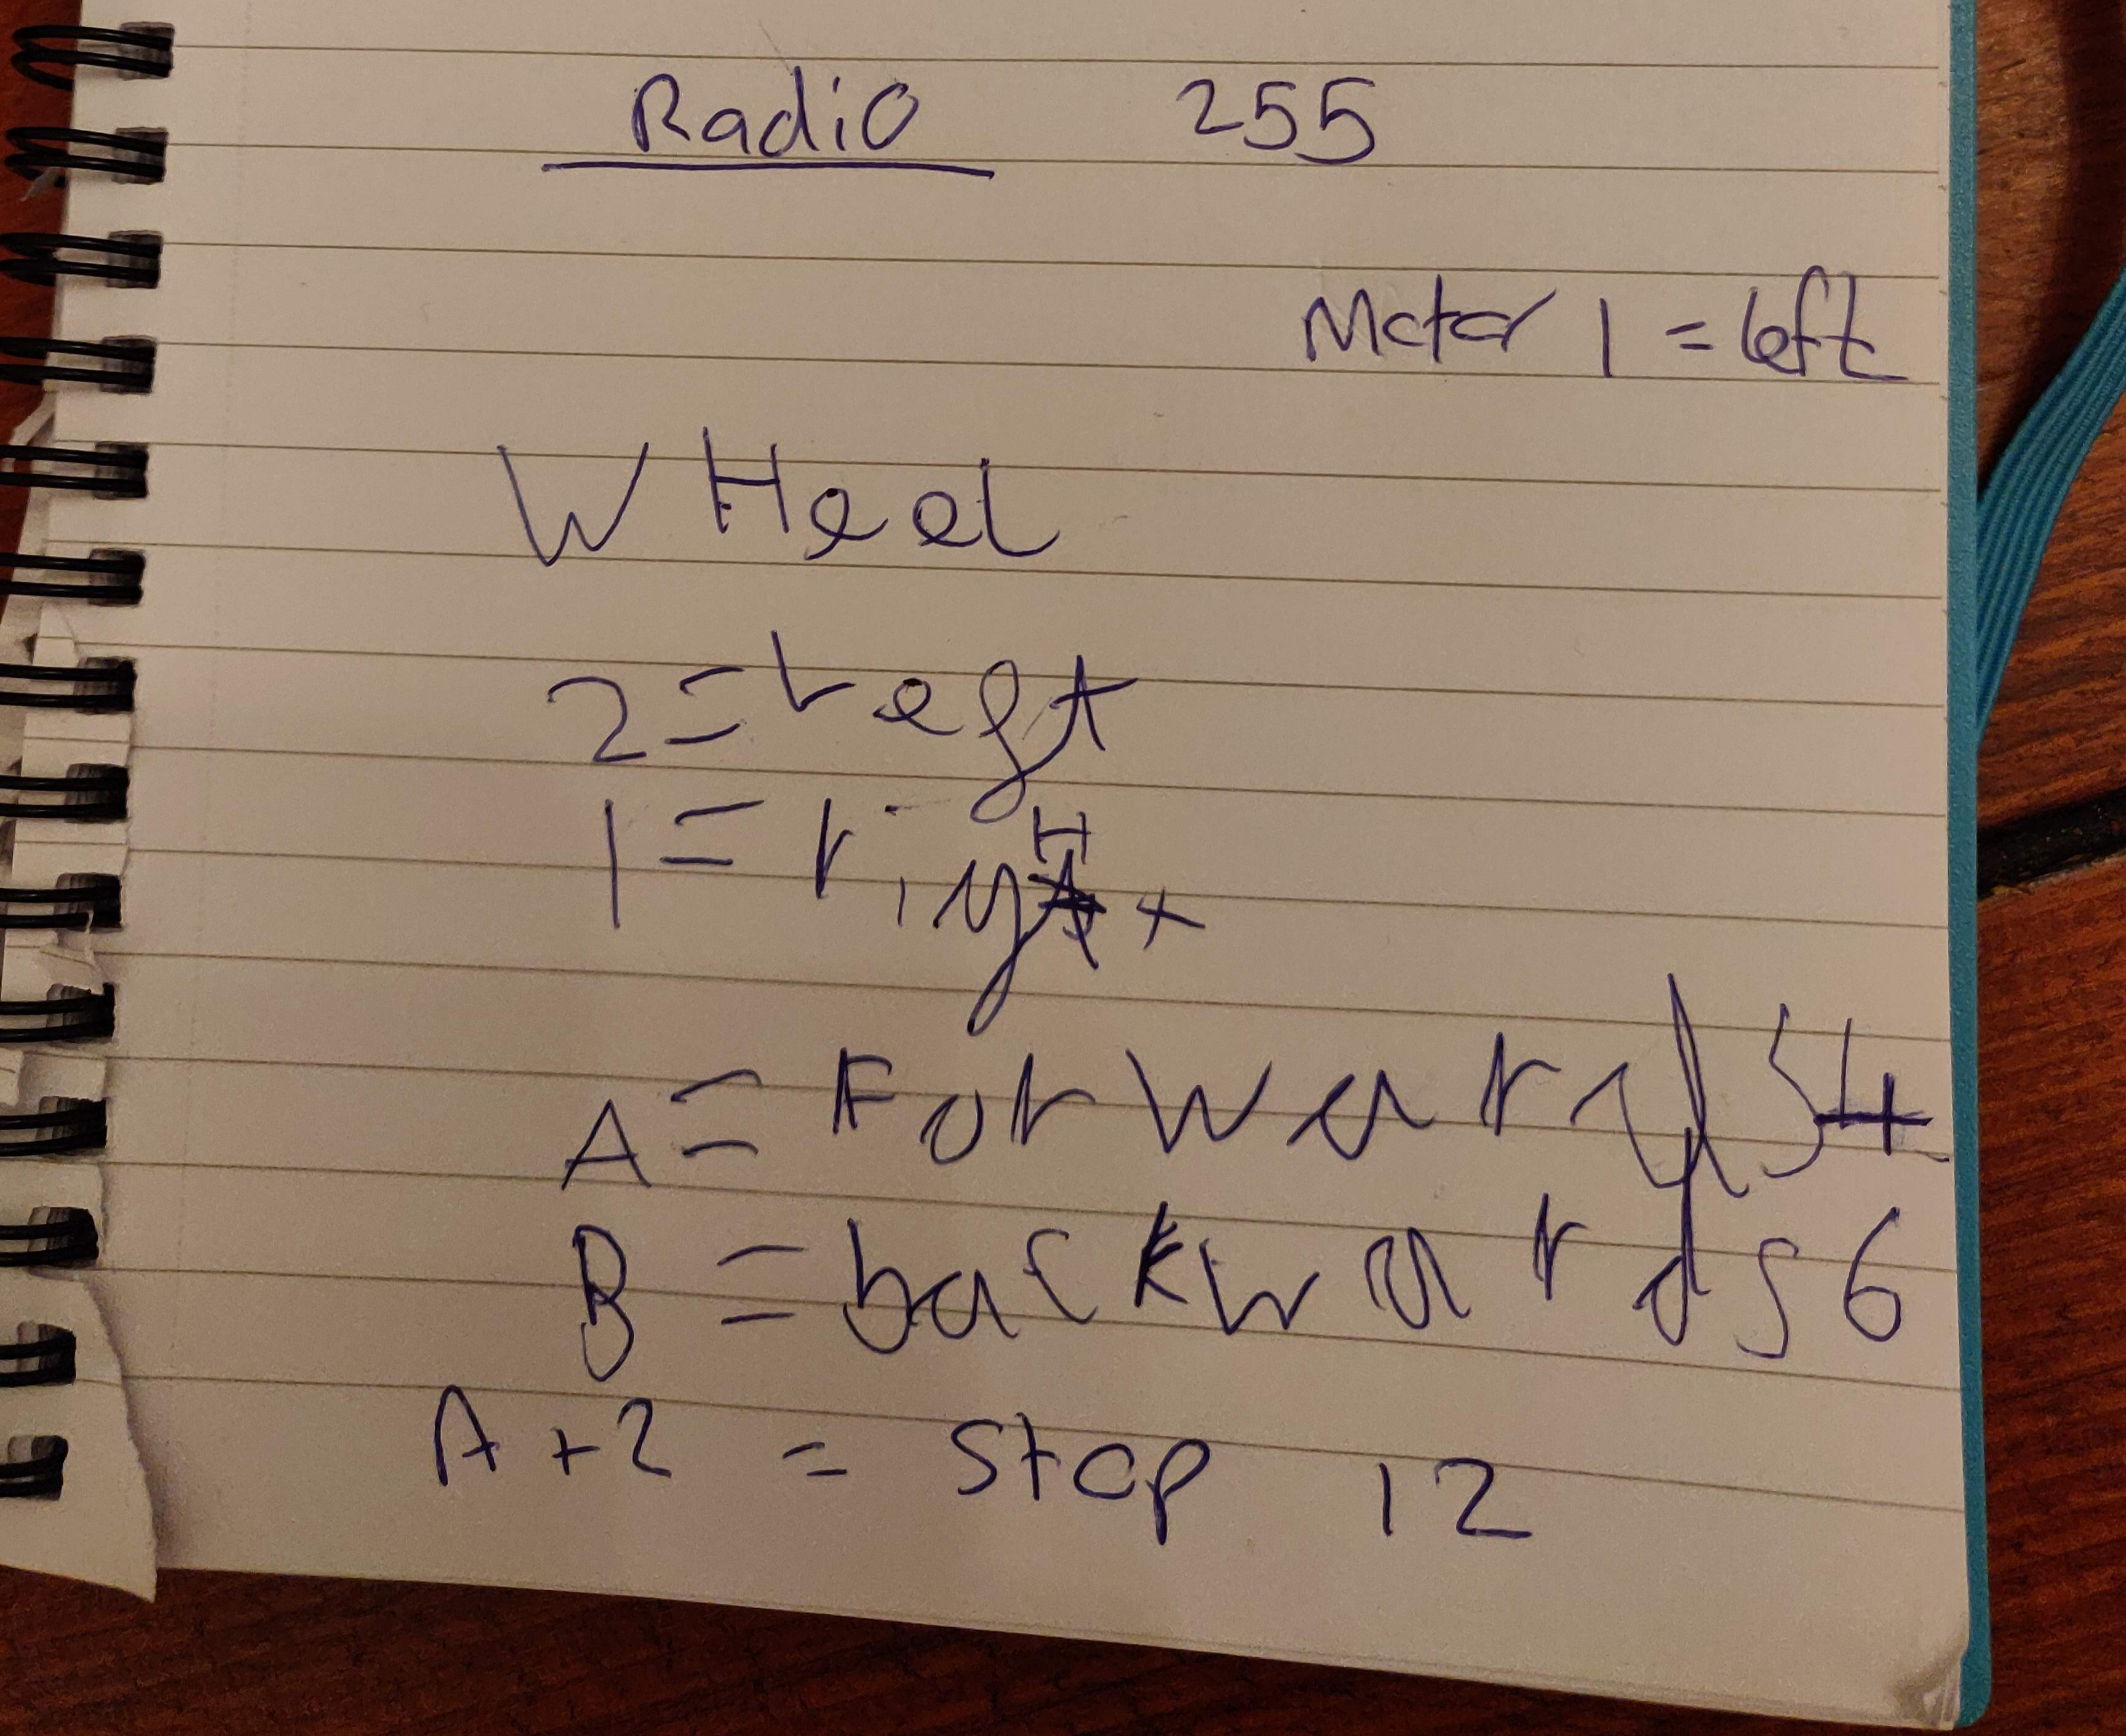 Radio 255
Motor 1 = left
WHeel
2 = Left
1 = rigHt
A = Forwards 4
B = backwards 6
A + 2 = stop 12